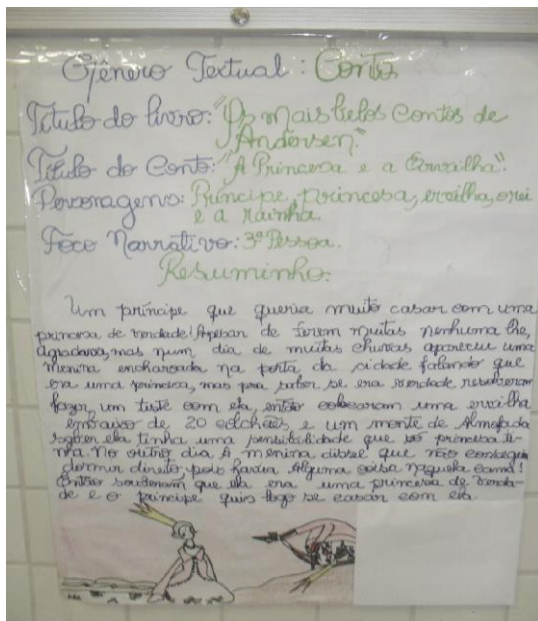 Gênero Textual: Conto
Título do livro: "Os mais belos Contos de
Andersen."
Título do Conto: "A Princesa e a Ervilha".
Personagens: Príncipe, princesa, ervilha, o rei
e a rainha.
Foco Narrativo: 3ª Pessoa.
Resuminho:
Um príncipe que queria muito casar com uma
princesa de verdade! Apesar de serem muitas nenhuma lhe
agradava, mas num dia de muitas chuvas apareceu uma
menina encharcada na porta da cidade falando que
era uma princesa, mas pra saber se era verdade resolveram
fazer um teste com ela, então colocaram uma ervilha
embaixo de 20 colchões e um monte de Almofada
ela tinha uma sensibilidade que só princesa ti-
nha. No outro dia A menina disse que não conseguiu
dormir direito, pois havia Alguma coisa naquela cama!
Então souberam que ela era uma princesa de verda-
de e o príncipe quis logo se casar com ela.